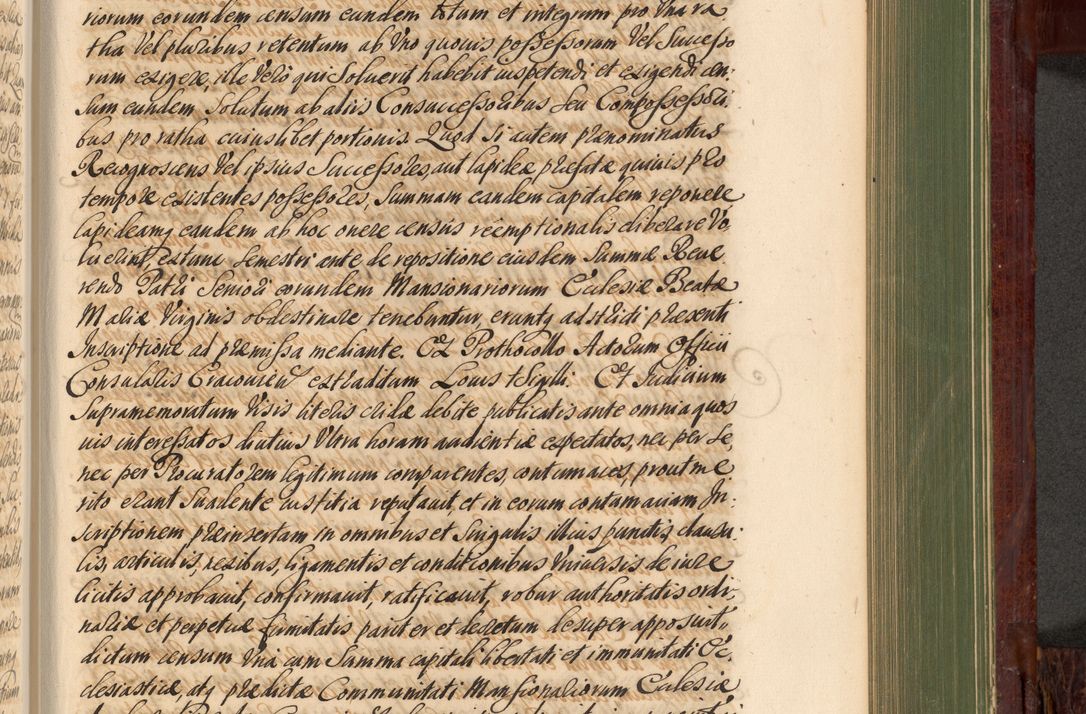 riorum eorundem censum eundem totum et integrum pro una ra
tha vel pluribus retentum ab uno quouis possessorum vel Successo
rum exigere, ille vero qui Soluerit habebit ius petendi et exigendi cen:
sum eundem Solutum ab aliis Consuccessoribus seu Compossessori
bus pro ratha cuiuslibet portionis. Quod si autem praenominatus
Recognoscens vel ipsius Successores, aut lapideae praefatae quiuis pro
tempore existentes possessores, Summam eandem capitalem reponere
lapideamq eandem ab hoc onere census reemptionalis liberare vo
luerint, extunc Semestri ante de repositione eiusdem Summae Reue
rendo Patri Seniori eorundem Mansionariorum Ecclesiae Beatae
Mariae Virginis obdestinare tenebuntur, eruntq adstricti praesenti
Inscriptione ad praemissa mediante. Ex Prothocollo Actorum Officii
Consularis Cracouien extraditum Locus Sigilli. Et Iudicium
Supramemoratum visis literis cridae debite publicatis ante omnia quos
uis interessatos diutius ultra horam audientiae expectatos, nec per se,
nec per Procuratorem legitimum comparentes, contumaces, prout me
rito erant Suadente iustitia reputauit, et in eorum contumaciam In:
scriptionem praeinsertam in omnibus et Singulis illius punctis, clausu:
lis, articulis, nexibus, ligamentis et conditionibus vniuersis de iure
licitis approbauit, confirmauit, ratificauit, robur authoritatis ordi,
nariae et perpetuae firmitatis pariter et decretum desuper apposuit,
dictum censum vna cum Summa capitali libertati et immunitati Ec,
clesiasticae, atq praedictae Communitati Mansionariorum Ecclesiae